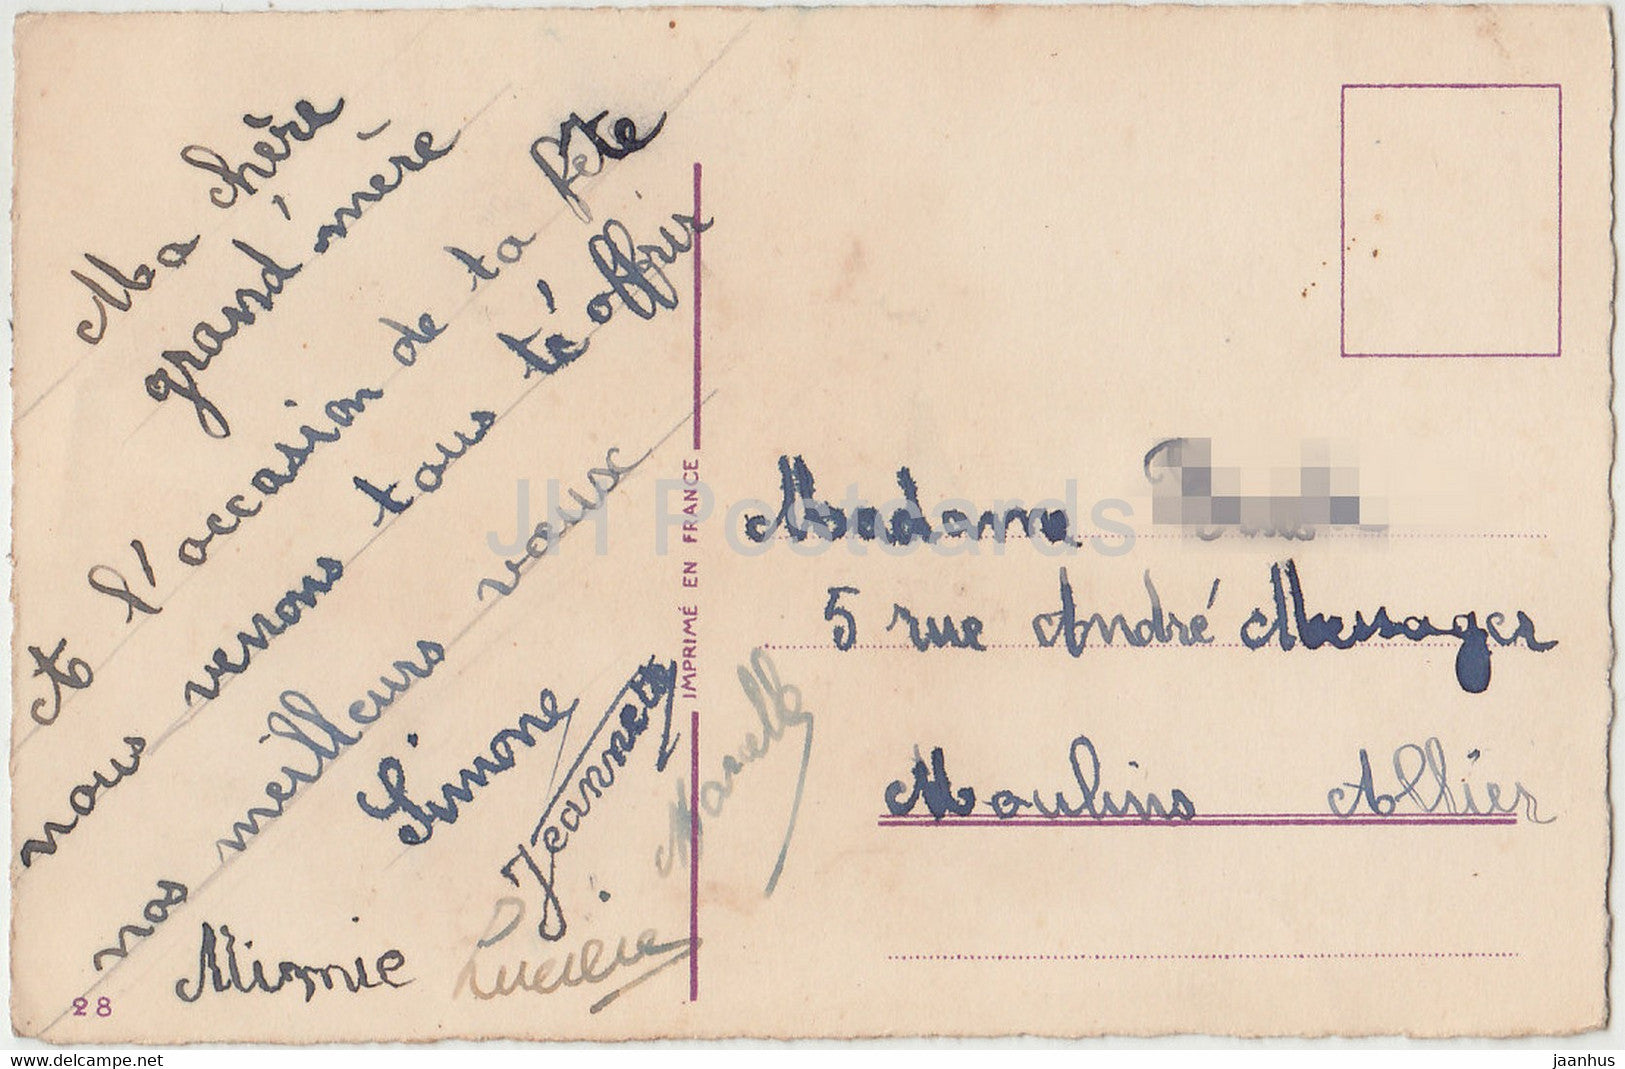 Ma chère
grand'mère
A l'occasion de ta fête
nous venons tous té offrir
nos meilleurs voeux
Simone
Jeannette
Marcelle
Mimie
Lucien
28
IMPRIMÉ EN FRANCE
Madame
5 rue André Messager
Moulins Allier
JH Postcards
www.delcampe.net
jaanhus